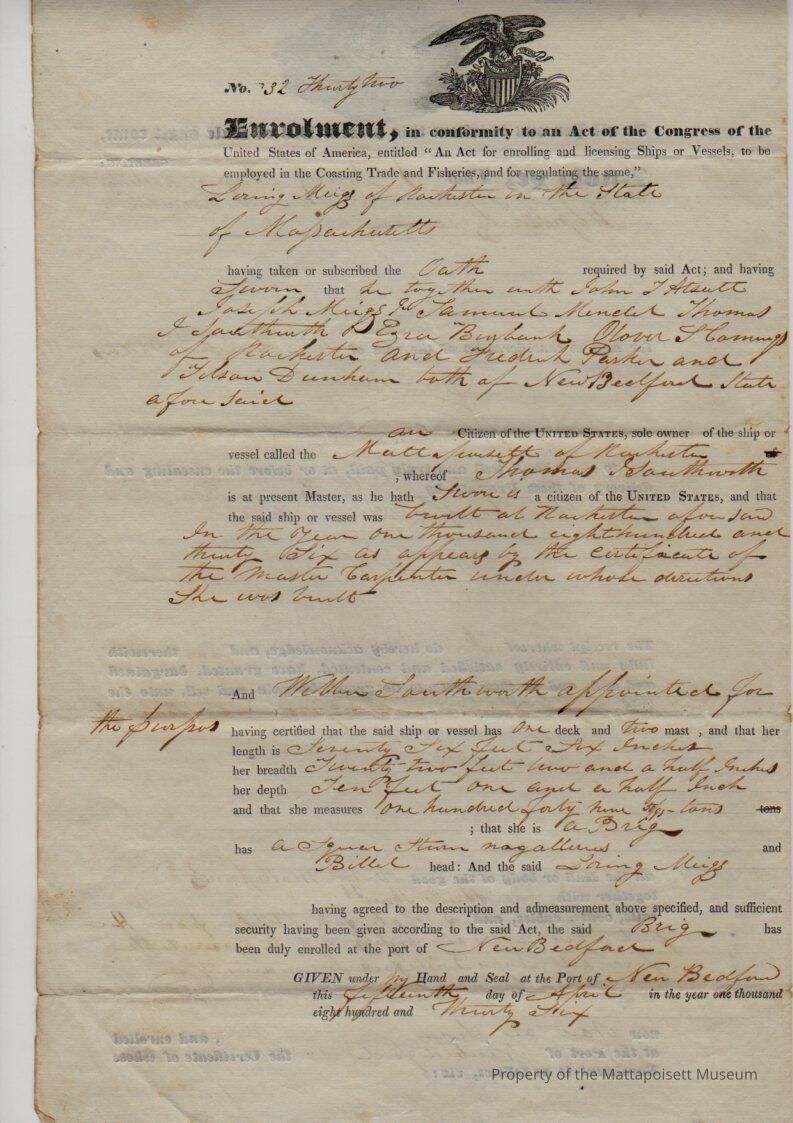 No. 32 Thirty two
Enrolment, in conformity to an Act of the Congress of the
United States of America, entitled "An Act for enrolling and licensing Ships or Vessels, to be
employed in the Coasting Trade and Fisheries, and for regulating the same,"
Loring Meigs of Rochester in the State
of Massachusetts
having taken or subscribed the Oath required by said Act; and having
Sworn that he together with John T Atsatt
Joseph Meigs Jr Samuel Mendel Thomas
J Southworth Ezra Oliver S
of Rochester and Fredrick Parker and
Tilson Dunham both of New Bedford State
afore said
an Citizen of the United States, sole owner of the ship or
vessel called the Mattapoisett of Rochester
, whereof Thomas J Southworth
is at present Master, as he hath Sworn is a citizen of the United States, and that
the said ship or vessel was built at Rochester afore said
In the Year one thousand eight hundred and
thirty Six as appears by the certificate of
the Master Carpenter under whose directions
She was built
And Wilbur Southworth appointed for
the purpos having certified that the said ship or vessel has one deck and two mast , and that her
length is Seventy Six feet Six Inches
her breadth Twenty two feet two and a half Inches
her depth Ten feet one and a half Inch
and that she measures one hundred forty nine tons tons
; that she is a Brig
has a Square Stern no galleries and
Billet head: And the said Loring Meigs
having agreed to the description and admeasurement above specified, and sufficient
security having been given according to the said Act, the said Brig has
been duly enrolled at the port of New Bedford
GIVEN under my Hand and Seal at the Port of New Bedford
this fifteenth day of April in the year one thousand
eight hundred and Thirty Six
Property of the Mattapoisett Museum